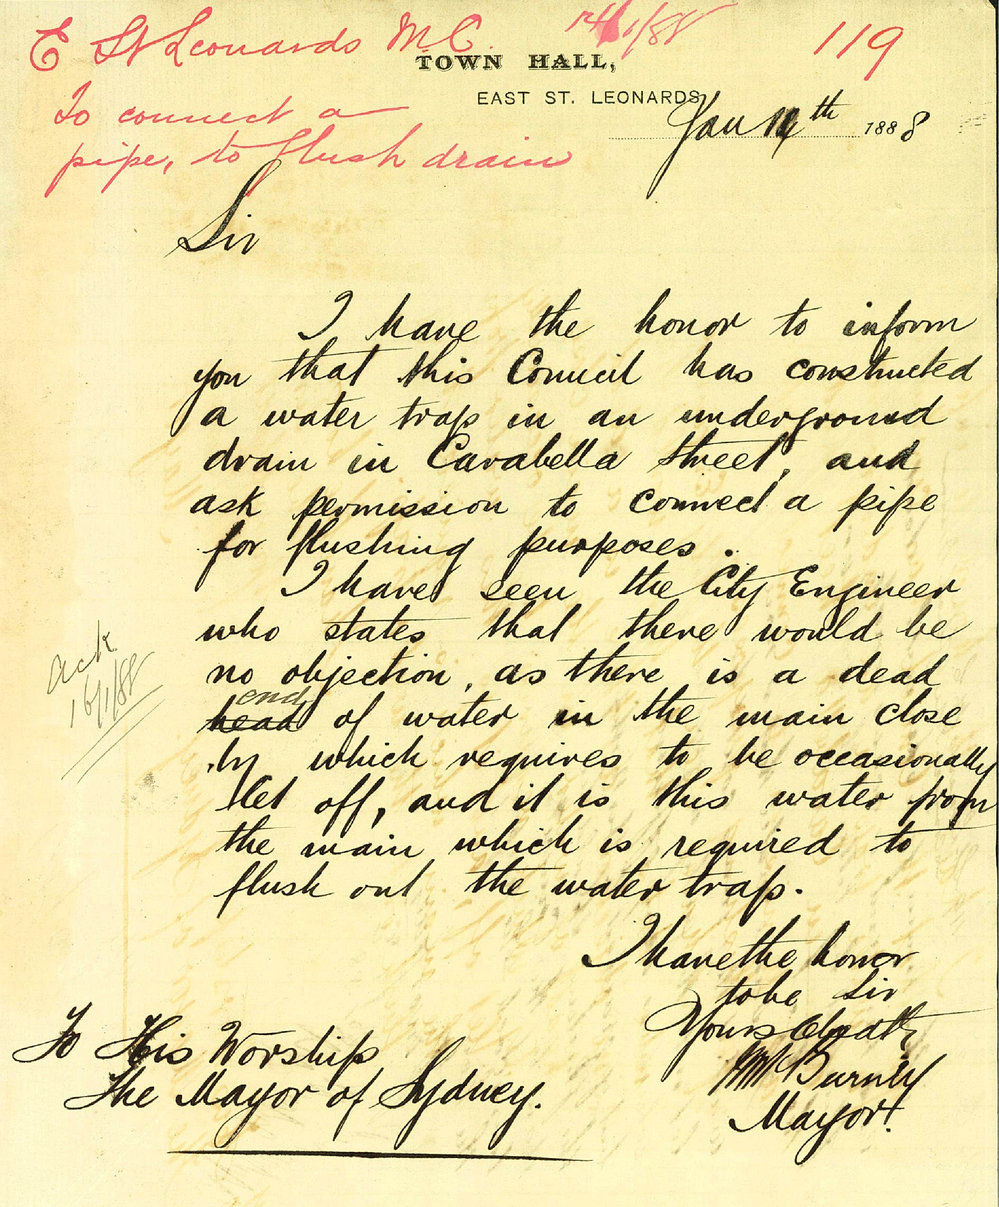 E St Leonards M C
14/1/88
119
To connect a
pipe, to flush drain
TOWN HALL,
EAST ST. LEONARDS
Jan th 1888
Sir
I have the honor to inform
you that this Council has constructed
a water trap in an underground
drain in Carabella Street, and
ask permission to connect a pipe
for flushing purposes.
I have seen the City Engineer
who states that there would be
no objection, as there is a dead
end
head of water in the main close
by which requires to be occasionally
let off, and it is this water from
the main which is required to
flush out the water trap.
ack
16/1/88
I have the honor
to be Sir
Yours Obedtly
McBurney
Mayor.
To His Worship
The Mayor of Sydney.